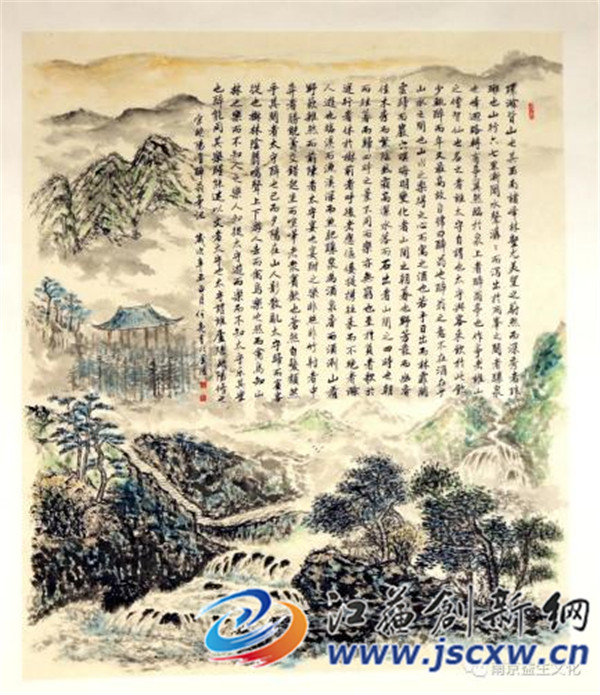 環滁皆山也其西南諸峰林壑尤美望之蔚然而深秀者琅
琊也山行六七里漸聞水聲潺潺而瀉出於兩峯之間者釀泉
也峰迴路轉有亭翼然臨於泉上者醉翁亭也作亭者誰山
之僧智仙也名之者誰太守自謂也太守與客來飲於此飲
少輒醉而年又最高故自號曰醉翁也醉翁之意不在酒在乎
山水之間也山水之樂得之心而寓之酒也若夫日出而林霏開
雲歸而巖穴暝晦明變化者山間之朝暮也野芳發而幽香
佳木秀而繁陰風霜高潔水落而石出者山間之四時也朝
而往暮而歸四時之景不同而樂亦無窮也至於負者歌於
途行者休於樹前者呼後者應傴僂提攜往來而不絕者滁
人遊也臨溪而漁溪深而魚肥釀泉為酒泉香而酒洌山肴
野蔌雜然而前陳者太守宴也宴酣之樂非絲非竹射者中
弈者勝觥籌交錯起坐而諠譁者眾賓歡也蒼然白髮頹然
乎其間者太守醉也已而夕陽在山人影散亂太守歸而賓客
從也樹林陰翳鳴聲上下遊人去而禽鳥樂也然而禽鳥知山
林之樂而不知人之樂人知從太守遊而樂而不知太守之樂其樂
也醉能同其樂醒能述以文者太守也太守謂誰廬陵歐陽修也
宋歐陽脩醉翁亭記 歲次辛丑
江苏创新网
www.jscxw.cn
南京益生文化